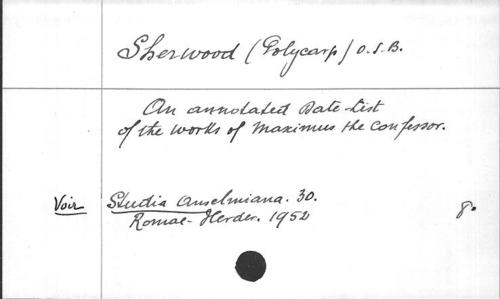 Sherwood (Polycarp) O.S.B.
An annotated Date-List
of the works of Maximus the Confessor.
Voir Studia Anselmiana. 30. 8.
Romae - Herder. 1952